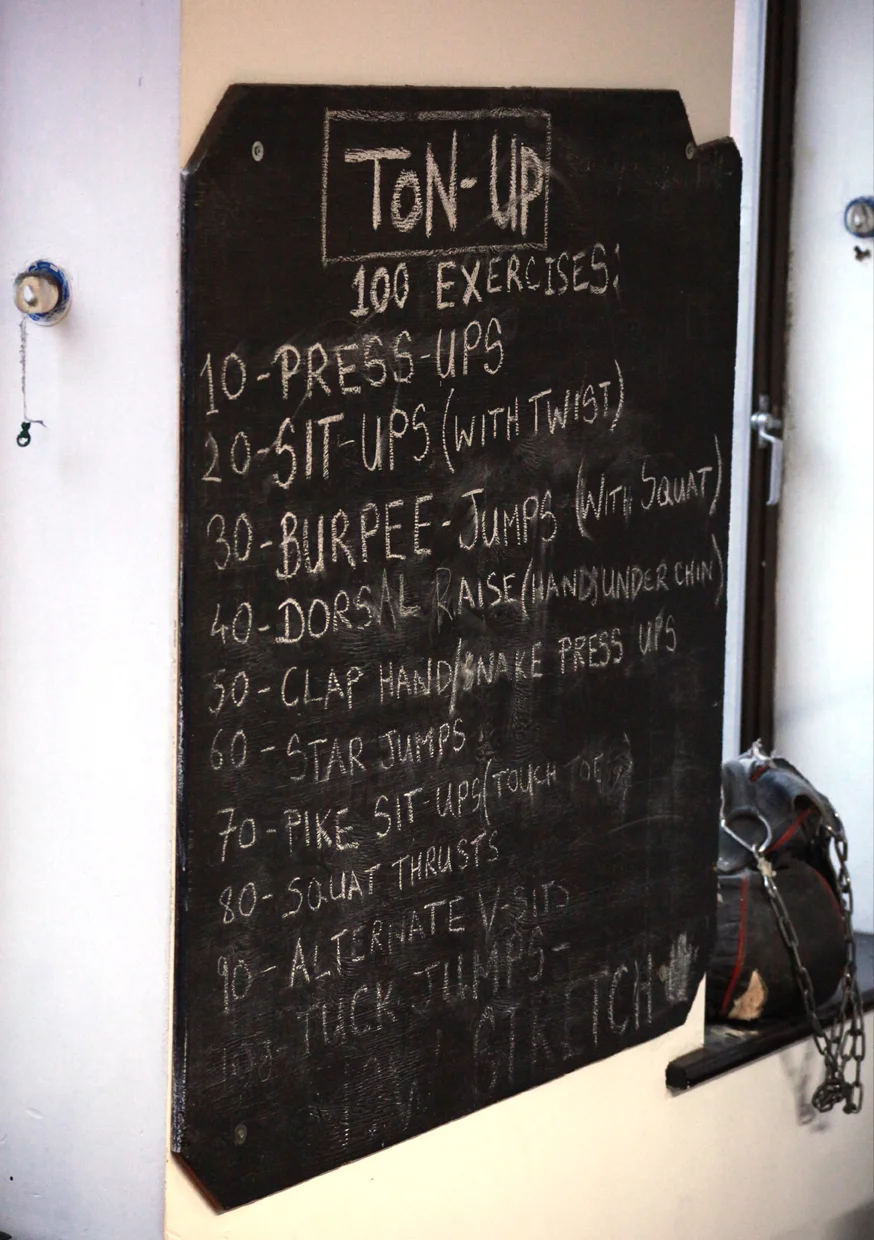 TON-UP
100 EXERCISES:
10-PRESS-UPS
20-SIT-UPS (WITH TWIST)
30-BURPEE-JUMPS (WITH SQUAT)
40-DORSAL RAISE (HANDS UNDER CHIN)
50-CLAP HAND/SNAKE PRESS UPS
60-STAR JUMPS
70-PIKE SIT-UPS (TOUCH TOES)
80-SQUAT THRUSTS
90-ALTERNATE V-SITS
100-TUCK JUMPS-
STRETCH